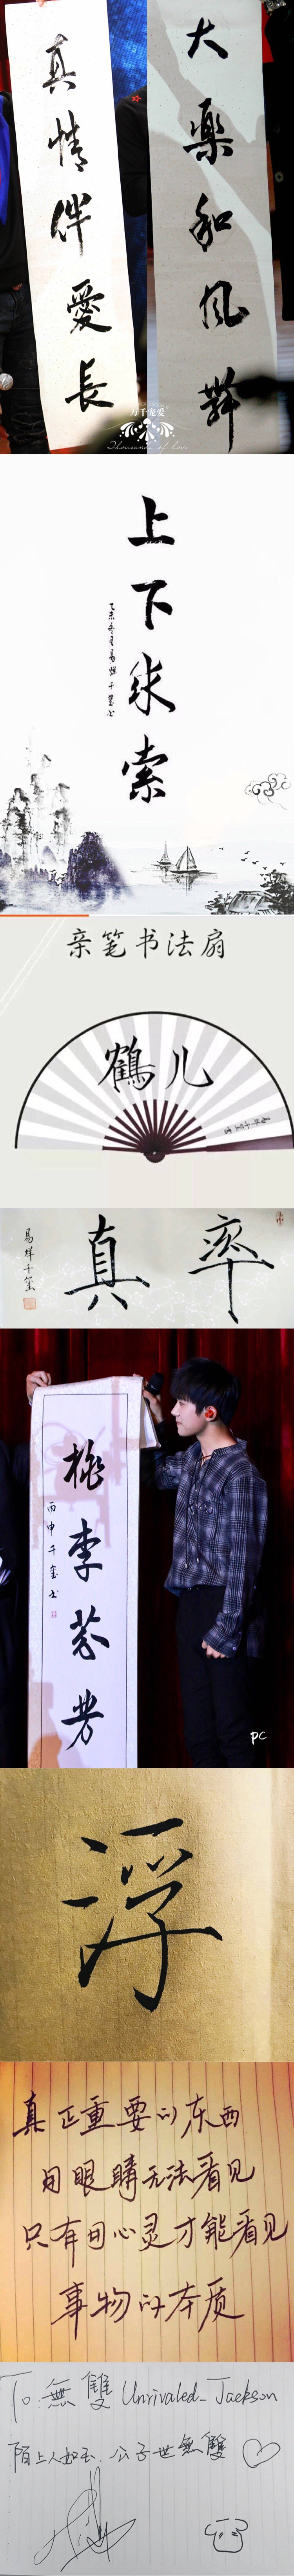 大樂和風舞
真情伴愛長
万千宠爱
Thousands of love
上下求索
乙未冬月易烊千璽书
亲笔书法扇
鶴儿
易烊千玺書
率真
易烊千玺
桃李芬芳
丙申千玺书
PC
浮
真正重要的东西
用眼睛无法看见
只有用心灵才能看见
事物的本质
To:無雙 Unrivaled_Jackson
陌上人如玉,公子世無雙